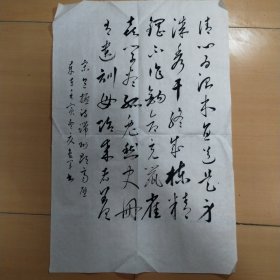 清心为治本直道是身
谋秀干终成栋精
钢不作钩仓充鼠雀
喜草尽兔狐愁史册
有遗训毋贻来者羞
宋包拯诗端州郡斋壁
壬寅冬